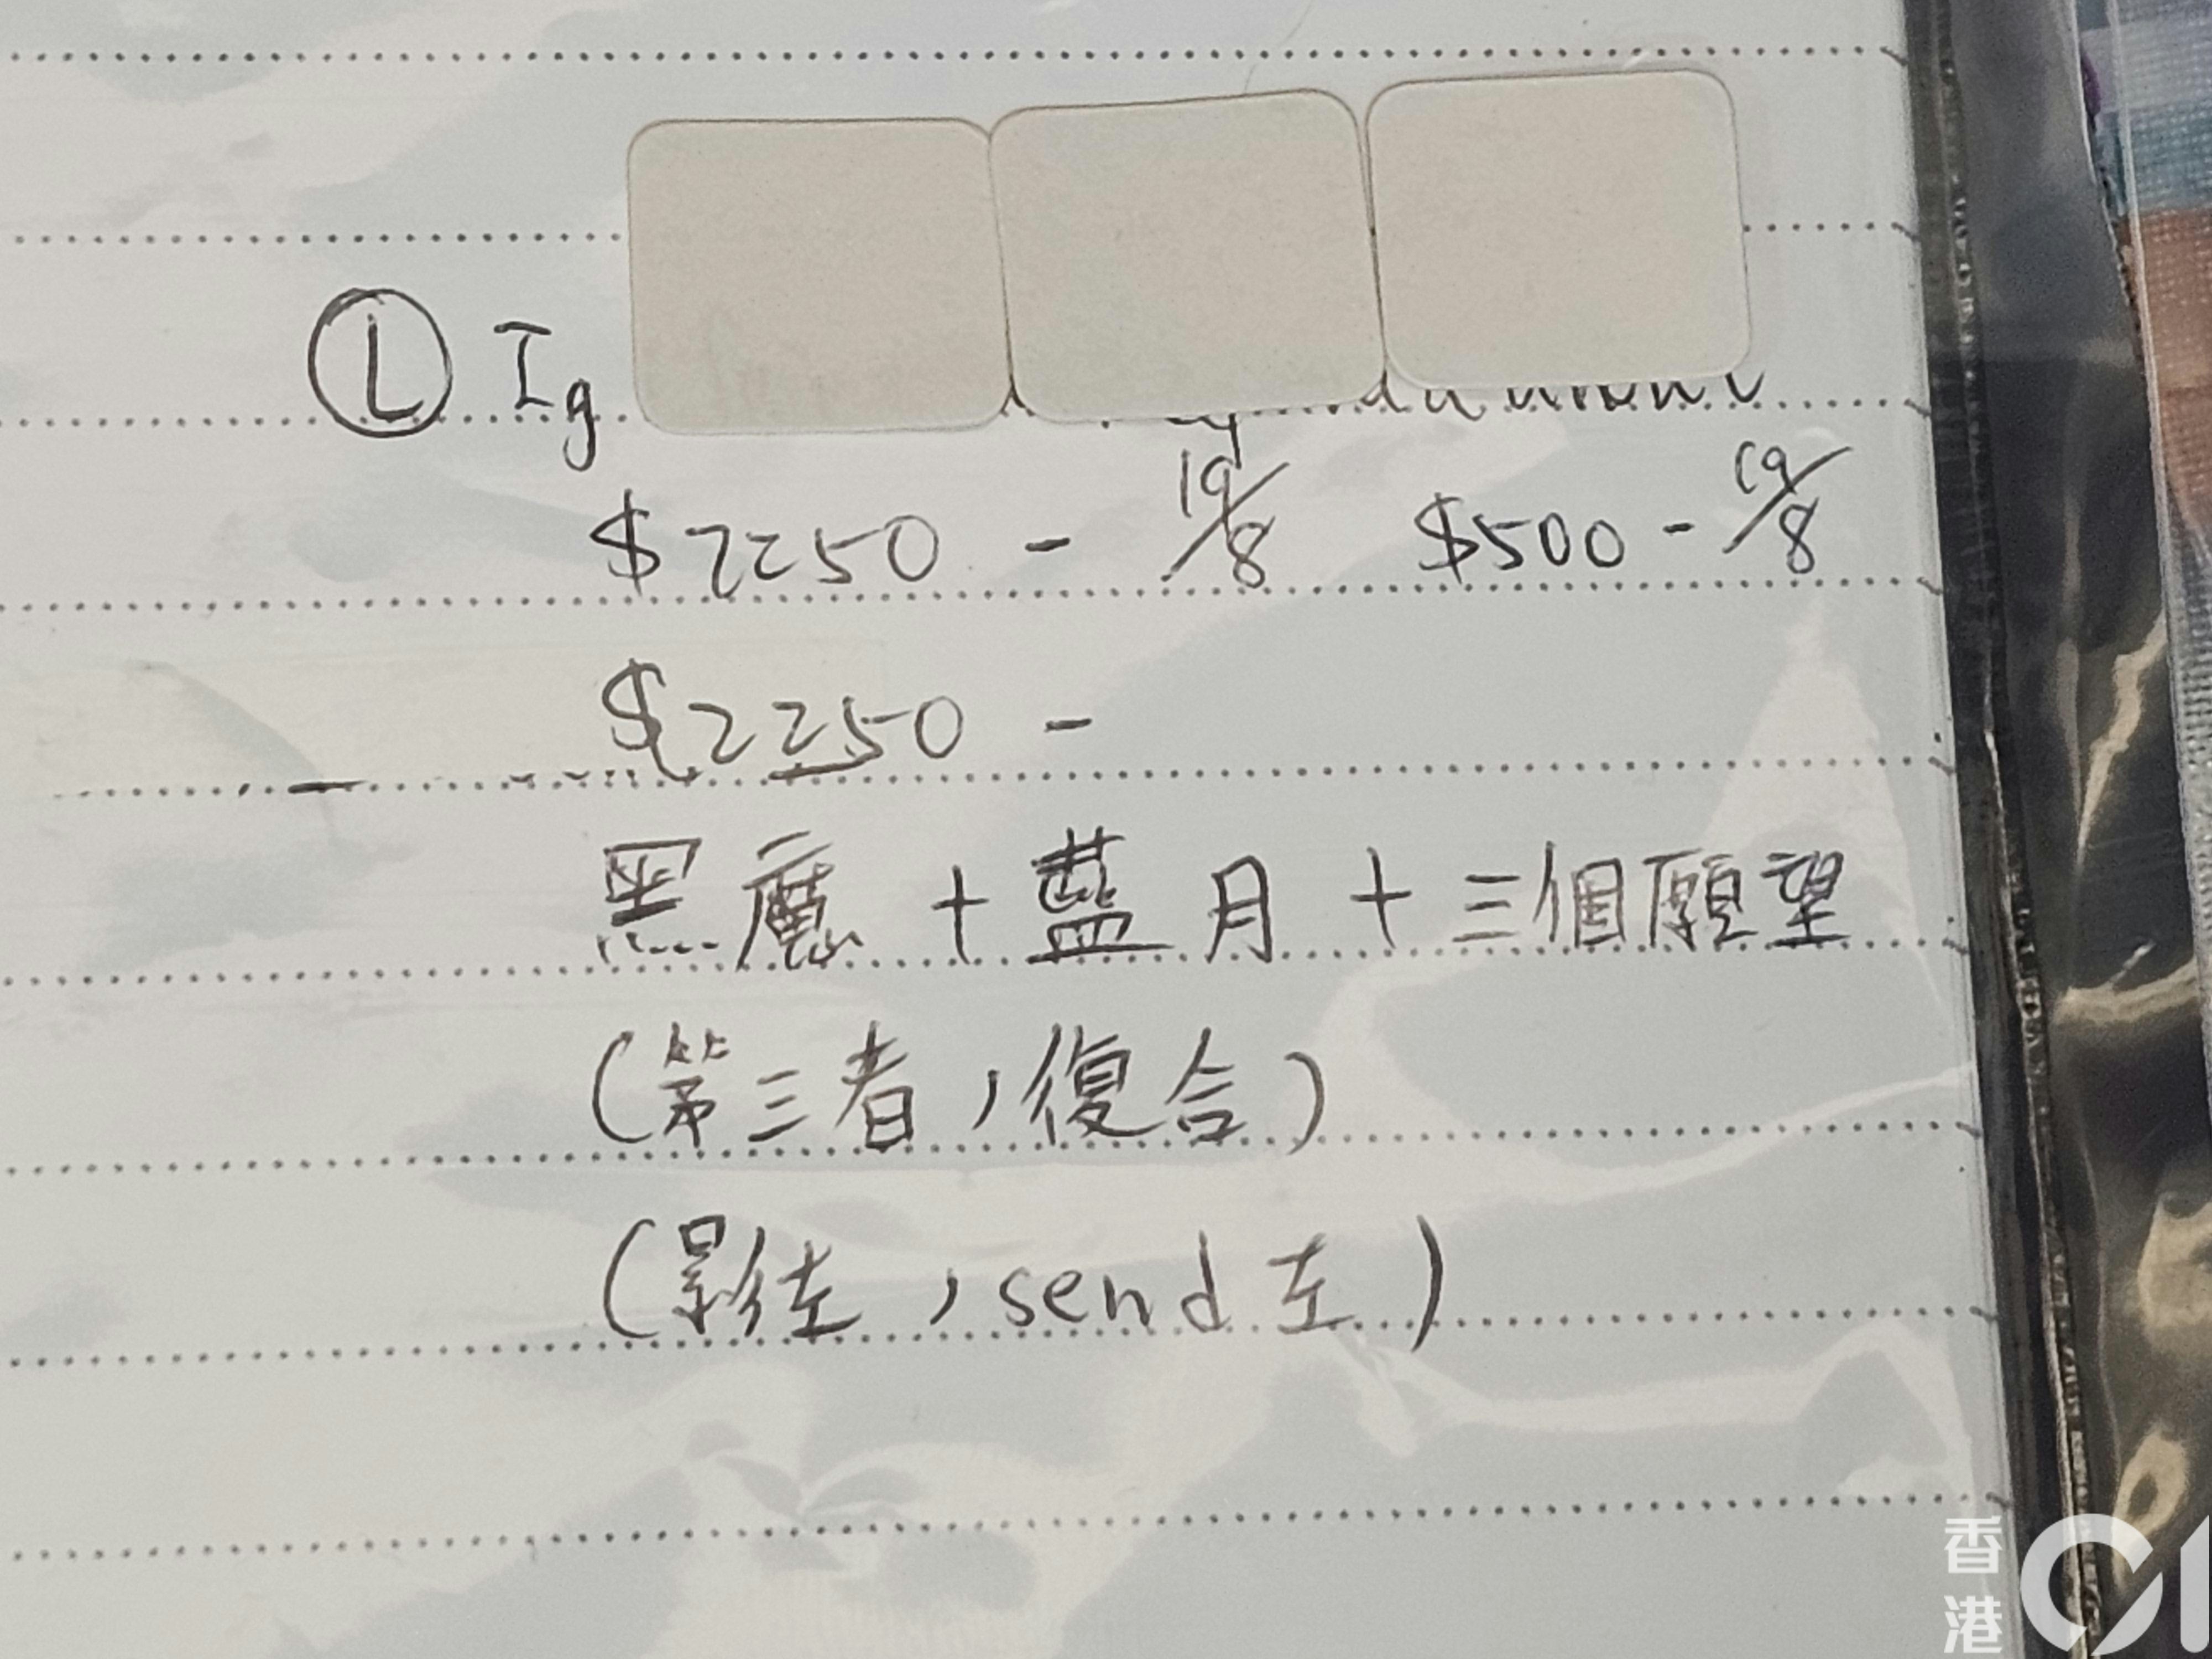 Ⓛ Ig
$2250 - 19/8 $500 - 19/8
$2250 -
黑魔 + 藍月 + 三個願望
(第三者，復合)
(影佐，send左)
香港01